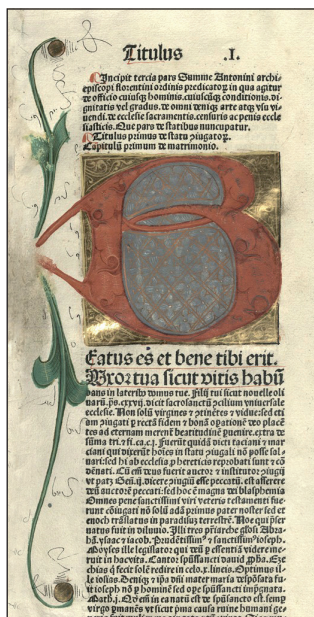 Titulus .I.
Incipit tercia pars Summe Antonini archi-
episcopi florentini ordinis predicatoꝝ in qua agitur
de officio cuiusqꝫ hominis. cuiuscūqꝫ conditionis. di-
gnitatis vel gradus. de omni deniqꝫ arte atqꝫ vsu vi-
uendi. de ecclesie sacramentis. censuris ac penis eccle
siasticis. Que pars de statibus nuncupatur.
Titulus primus de statu ɔiugatoꝝ.
Capitulū primum de matrimonio.
B
Eatus es et bene tibi erit.
Uxor tua sicut vitis habū
dans in laterib⁹ domus tue. Filij tui sicut nouelle oli
uarū. ps. cxxvij. dicit sacrosanctū ɔciliuꝫ vniuersale
ecclesie. Non solū virgines ⁊ ɔtinētes ⁊ vidue: sed eti
am ɔiugati ꝑ rectā fidem ⁊ bonā oꝑationē deo place
tes ad eternam merent̄ beatitudinē ꝑuenire. extra de
sūma tri. ⁊ fi. ca. c. j. Fuerūt quidā dicti taciani ⁊ mar
ciani qui dixerūt hoīes in statu ɔiugali nō posse sal-
uari: sed hi ab ecclesia ꝓ hereticis reprobati sunt ⁊ cō
dēnati. Cū em̄ deus fuerit auctor ⁊ institutor ɔiugij
vt patꝫ Gen. ij. dicere ɔiugiū esse peccatū. est asserere
deū auctorē peccati: sed hoc ē magna dei blasphemia
Omnes pene sanctissimi viri veteris testamenti fue-
runt cōiugati nō solū adā primus pater noster sed et
enoch trāslatus in paradisuꝫ terrestrē. Noe qui ꝑser
uatus fuit in diluuio. Illi tres pr̄iarche glōsi Abra-
hā. ysaac ⁊ iacob. Prudētissim⁹ ⁊ sanctissim⁹ ioseph.
Moyses ille legislator qui deū ꝑ essentiā videre me-
ruit in hac vita. Cantor spūssancti dauid ꝓpha. Eze
chias q̄ fecit solē redire in celo. x. lineis. Optimus il-
le iosias. Deniqꝫ ⁊ ipa dn̄i mater maria despōsata fu-
it ioseph nō ꝑ hominē sed ope spūssancti impgnata.
Math. j. Qd em̄ in ea natū est de spūsancto est. semꝑ
virgo ꝑmanēs vt sicut pma causa ruine humani ge-